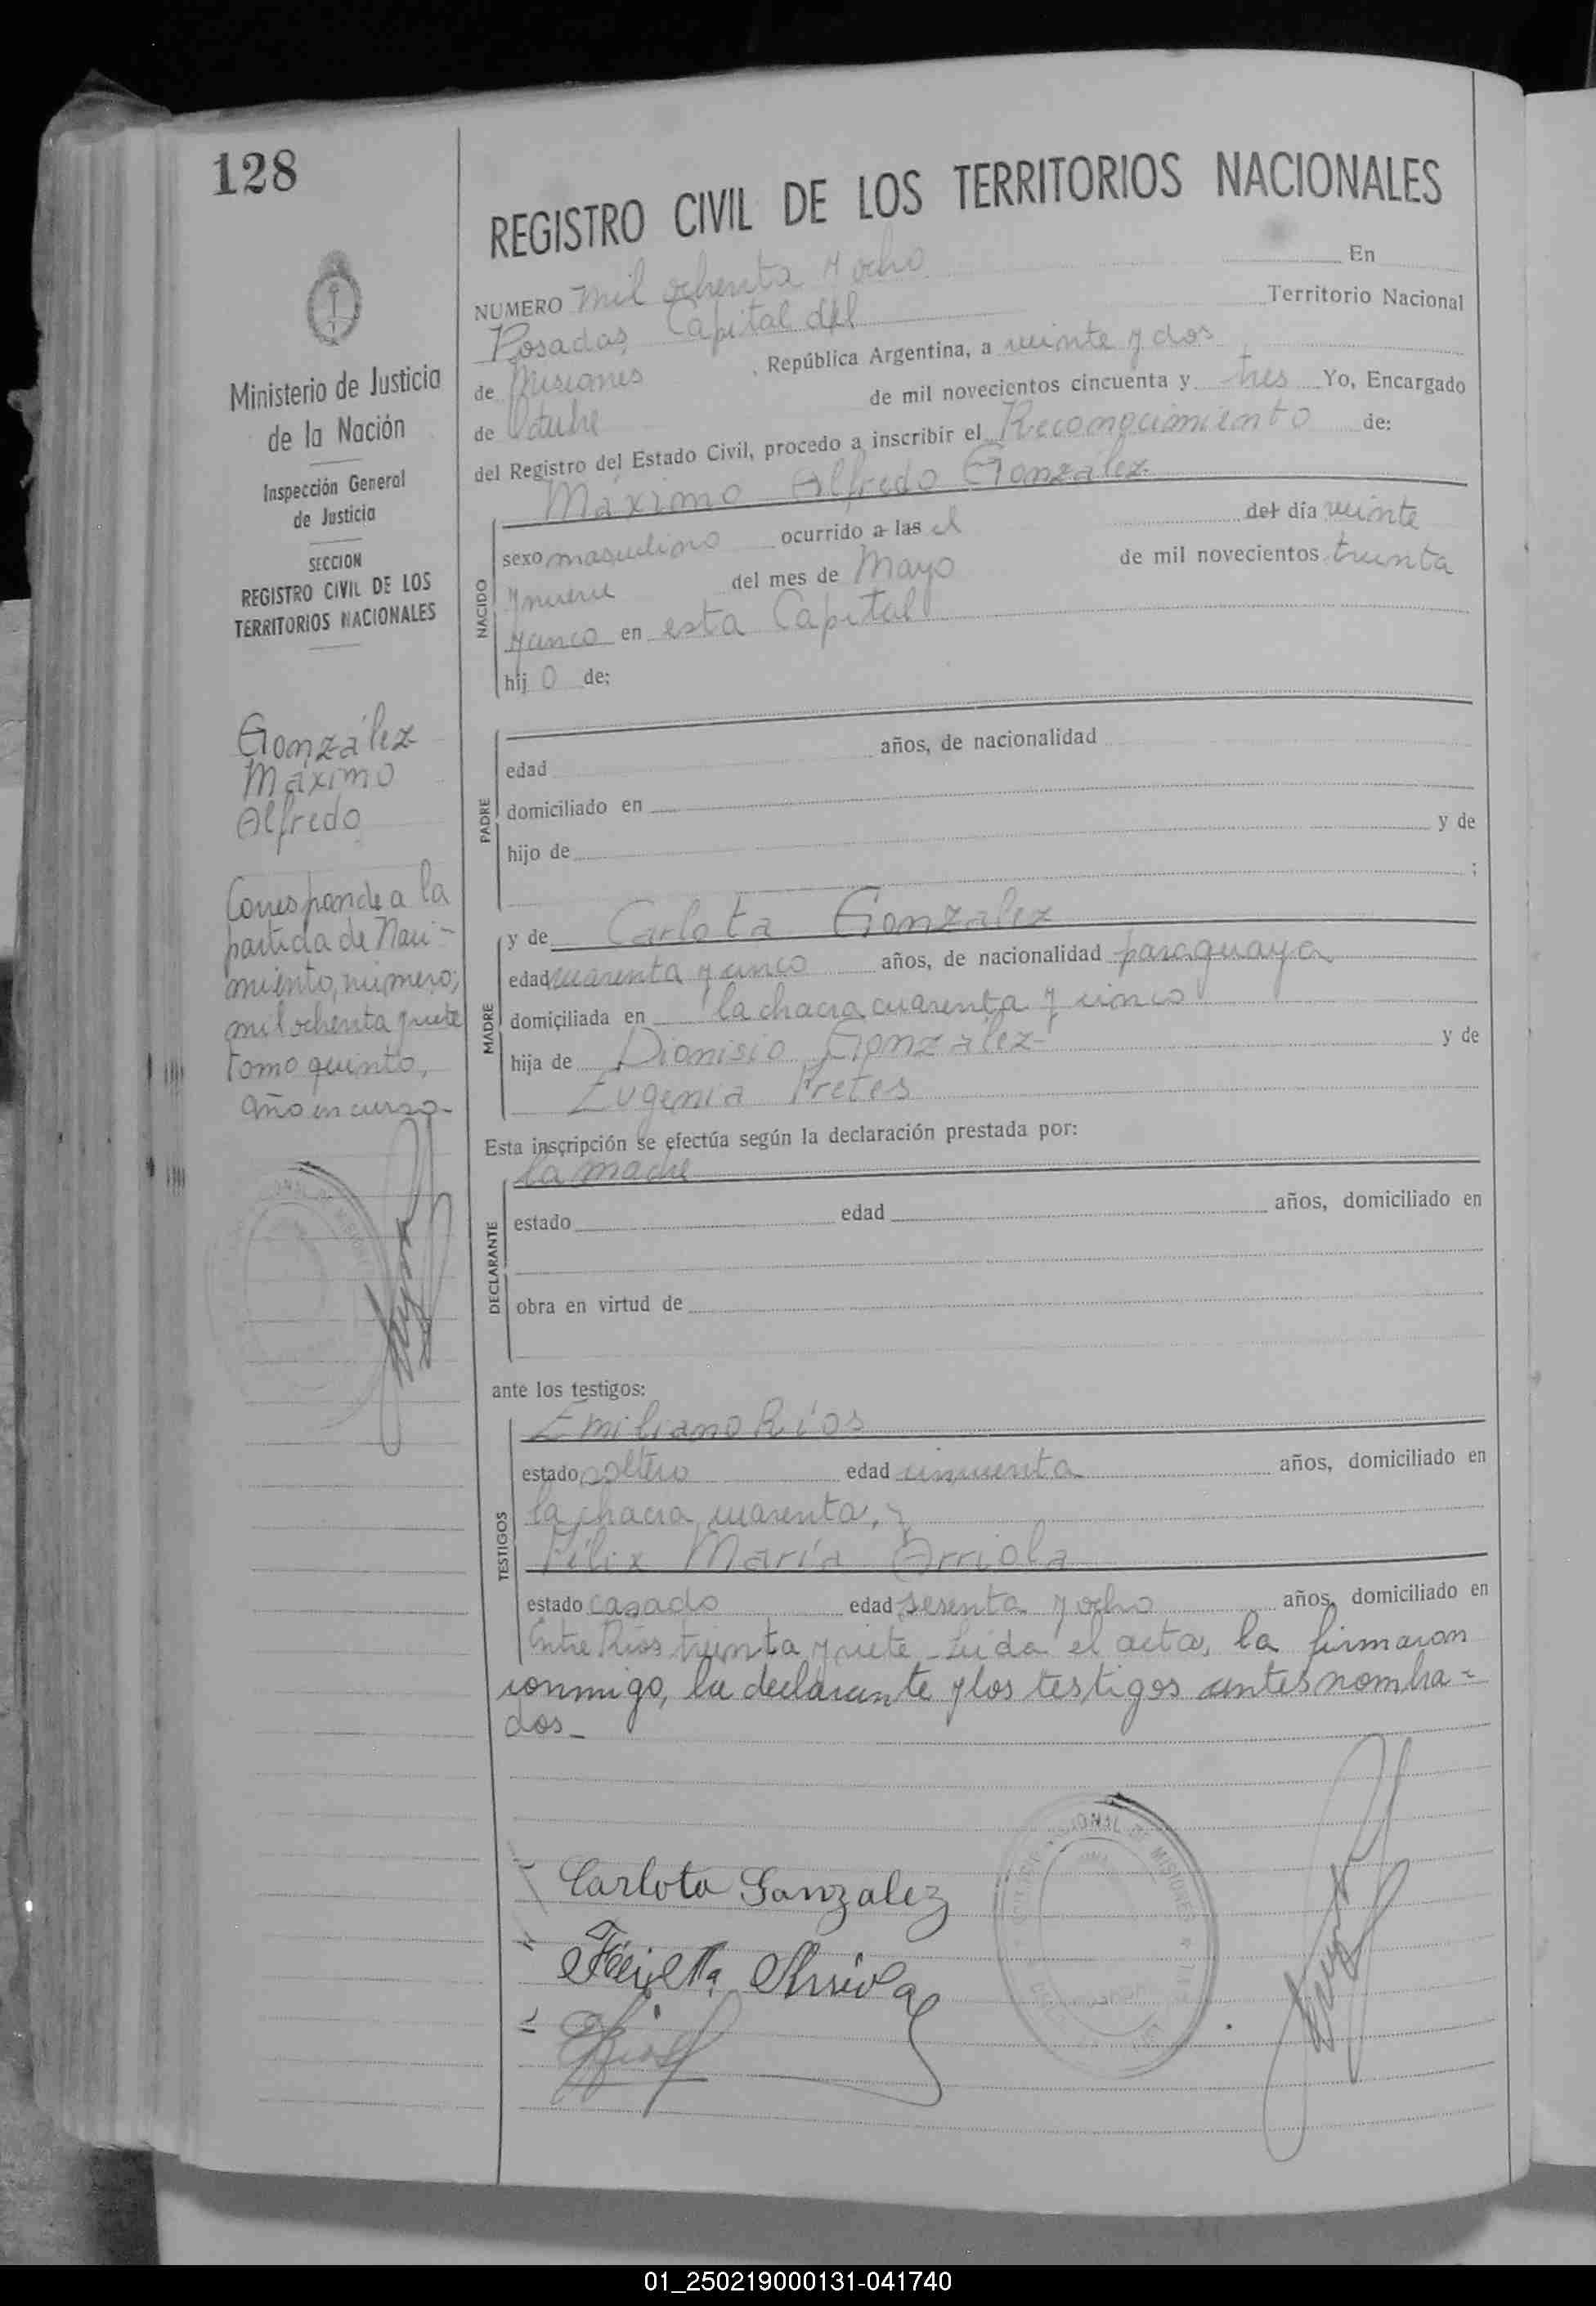 128
REGISTRO CIVIL DE LOS TERRITORIOS NACIONALES
Ministerio de Justicia
de la Nación
Inspección General
de Justicia
SECCION
REGISTRO CIVIL DE LOS
TERRITORIOS NACIONALES
González
Máximo
Alfredo
Corresponde a la
partida de Naci-
miento, número,
mil ochenta y siete
tomo quinto,
año en curso-
NUMERO mil ochenta y ocho En
Posadas, Capital del Territorio Nacional
de Misiones, República Argentina, a veinte y dos
de Octubre de mil novecientos cincuenta y tres Yo, Encargado
del Registro del Estado Civil, procedo a inscribir el Reconocimiento de:
Máximo Alfredo González
NACIDO
sexo masculino ocurrido a las el del día veinte
y nueve del mes de Mayo de mil novecientos treinta
y cinco en esta Capital
hij o de:
PADRE
edad años, de nacionalidad
domiciliado en
hijo de y de
;
MADRE
y de Carlota González
edad cuarenta y cinco años, de nacionalidad paraguaya
domiciliada en la chacra cuarenta y cinco
hija de Dionisio González y de
Eugenia Pretes
Esta inscripción se efectúa según la declaración prestada por:
la madre
DECLARANTE
estado edad años, domiciliado en
obra en virtud de
ante los testigos:
TESTIGOS
Emiliano Ríos
estado soltero edad cincuenta años, domiciliado en
la chacra cuarenta, y
Félix María Arriola
estado casado edad sesenta y ocho años, domiciliado en
Entre Ríos treinta y siete - Leida el acta, la firmaron
conmigo, la declarante y los testigos antes nombra=
dos-
Carlota Gonzalez
Félix Ma Arriola
01_250219000131-041740